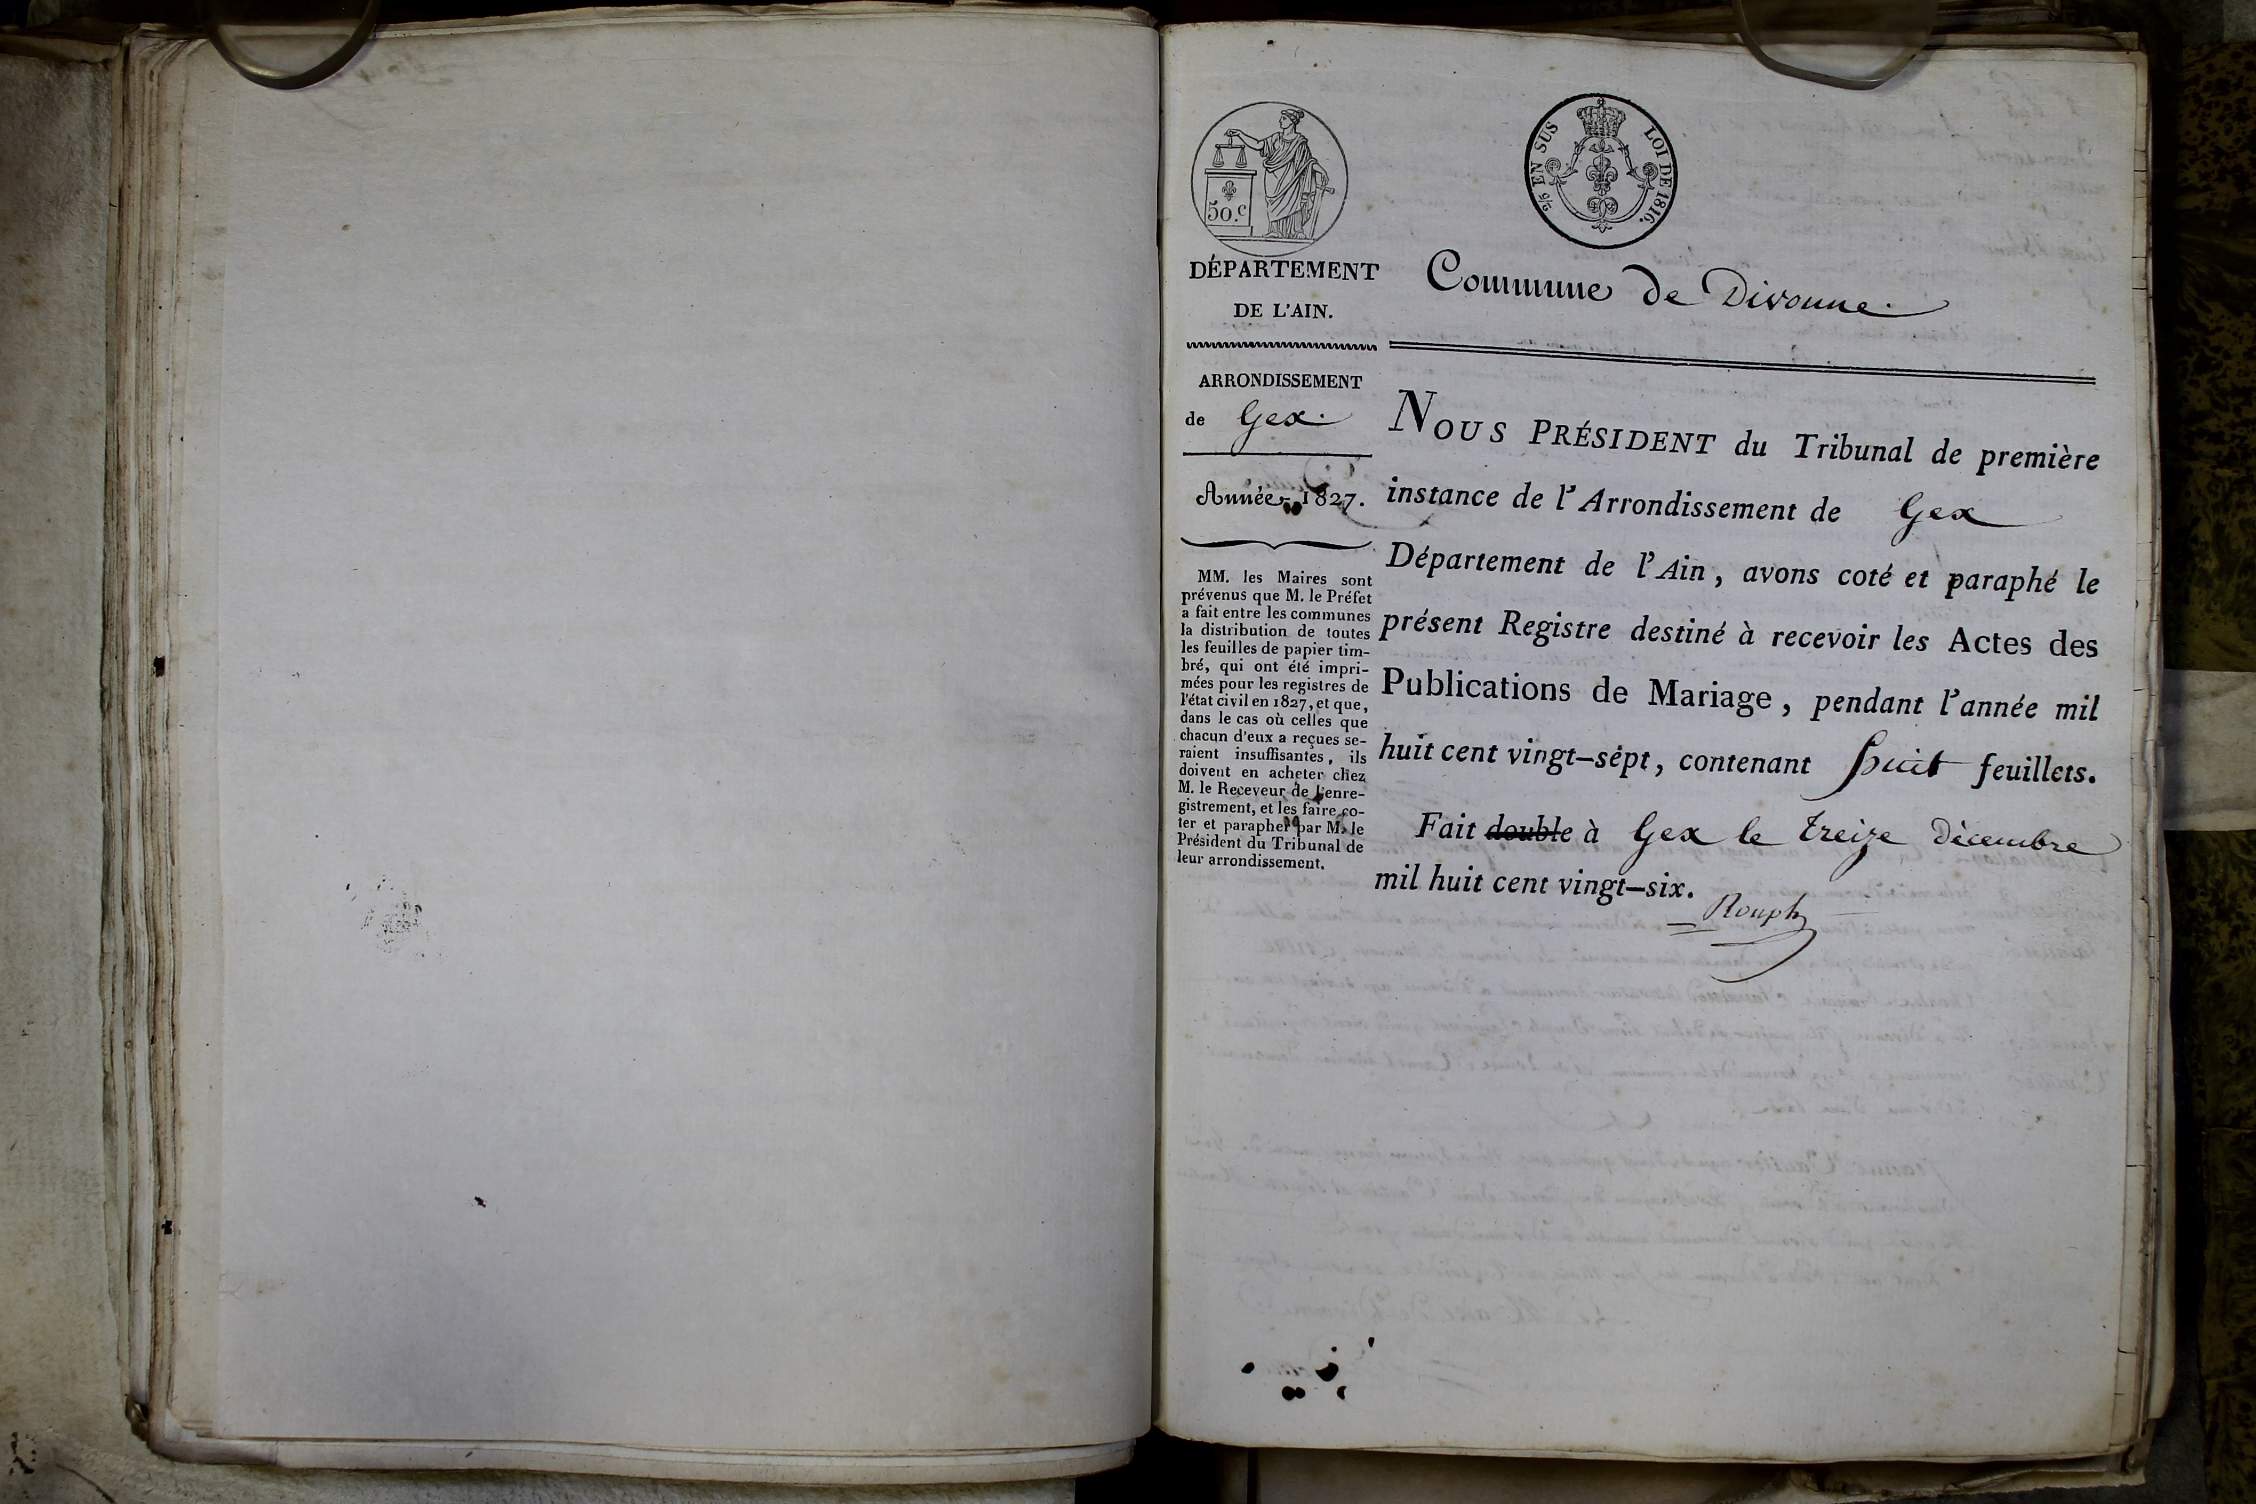 50.c
2/6 EN SUS LOI DE 1816.
DÉPARTEMENT
DE L'AIN.
Commune de Divonne.
ARRONDISSEMENT
de Gex.
Année 1827.
MM. les Maires sont
prévenus que M. le Préfet
a fait entre les communes
la distribution de toutes
les feuilles de papier tim-
bré, qui ont été impri-
mées pour les registres de
l'état civil en 1827, et que,
dans le cas où celles que
chacun d'eux a reçues se-
raient insuffisantes, ils
doivent en acheter chez
M. le Receveur de l'enre-
gistrement, et les faire co-
ter et parapher par M. le
Président du Tribunal de
leur arrondissement.
NOUS PRÉSIDENT du Tribunal de première
instance de l'Arrondissement de Gex
Département de l'Ain, avons coté et paraphé le
présent Registre destiné à recevoir les Actes des
Publications de Mariage, pendant l'année mil
huit cent vingt-sept, contenant huit feuillets.
Fait double à Gex le treize décembre
mil huit cent vingt-six.
Rouph